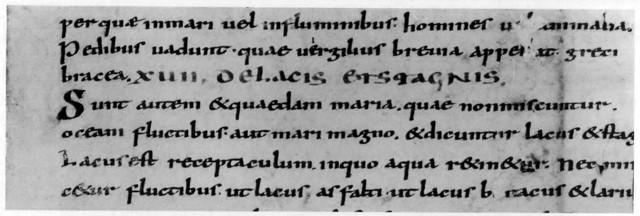 per quæ in mari vel in fluminibus homines animalia.
Pedibus vadunt. quae vergilius brevia appel at. greci
bracea. XVIII, DE LACIS ET STAGNIS.
Sunt autem & quaedam maria. quae non miscuntur.
oceani fluctibus. aut mari magno. & dicuntur lacus & stag
Lacus est receptaculum. in quo aqua r&in&ur. nec
c&ur fluctibus. ut lacus asfalti. ut lacus b acus & lariu